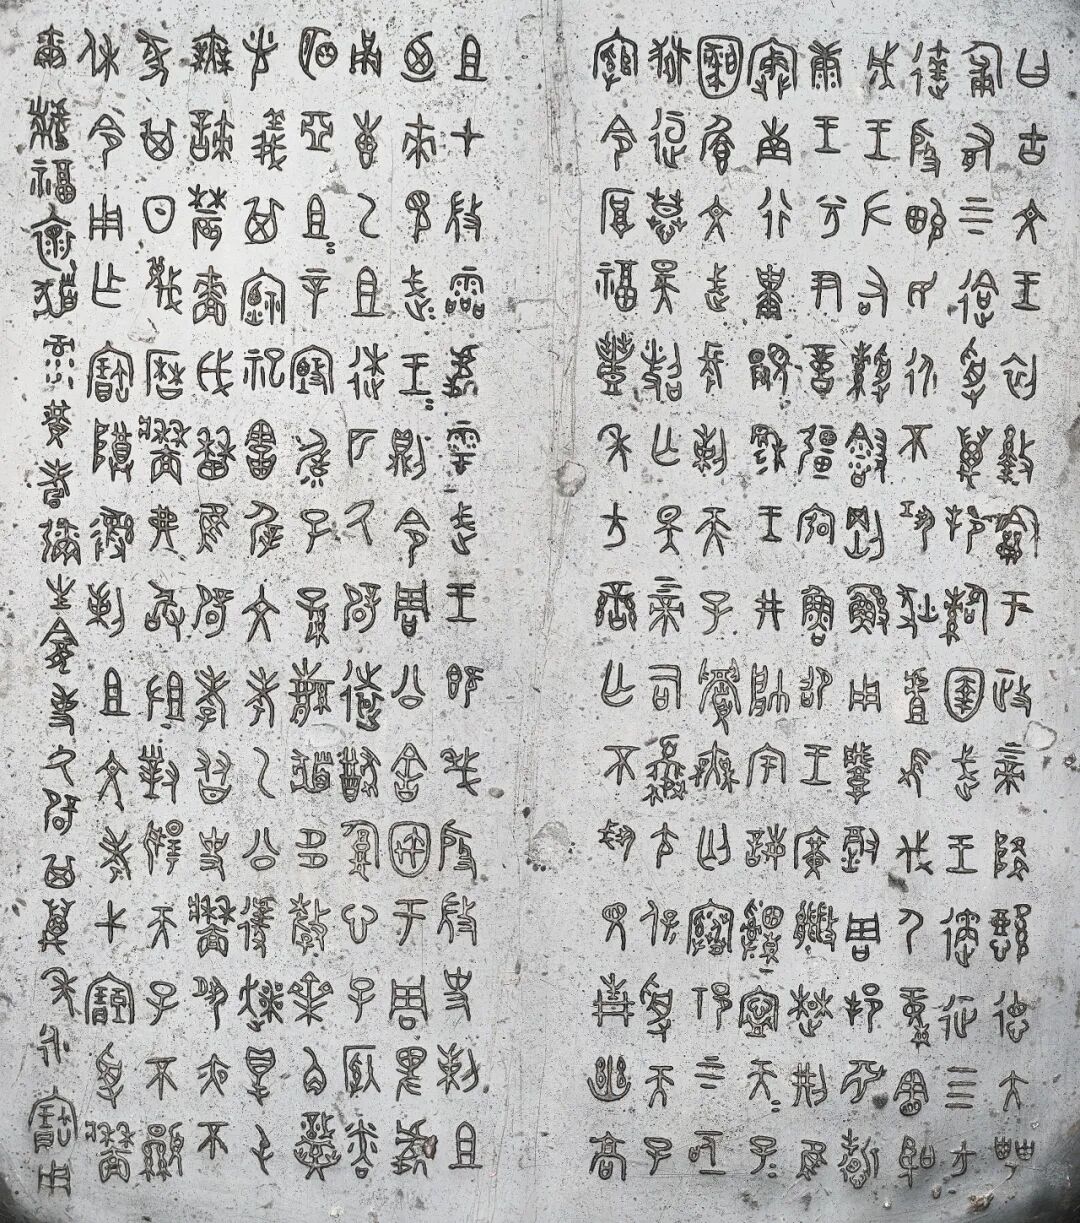 曰古文王初盭龢于政上帝降懿德大甹
匍有上下迨受萬邦𩁹圉武王遹征四方
達殷畯民永不巩狄虘髟伐尸童憲聖
成王左右綬𩁹剛鯀用肇徹周邦淵哲
康王兮尹億疆宖魯卲王廣批楚荊隹
寏南行祗覭穆王井帥宇誨申寧天子天子
圉纘文武長剌天子眉無匄寋祁上下
亟熙桓慕昊照亡斁上帝司夔尢保受天子
綰令厚福豐年方蠻亡不䚄見青幽高
且甲微靈處雩武王既𢦏殷微史剌且
迺來見武王武王則令周公舍宇于周卑處
甬叀乙且逨匹氒辟遠猷腹心子納粦
明亞且且辛毓子孫繁祓多釐齊角熾
光義其禋祀胡遟文考乙公遽爽得屯
無諫農嗇戉曆隹辟孝友史墻夙夜不
墜其日蔑曆墻弗敢沮對揚天子不顯
休令用乍寶尊彝剌且文考弋貯受墻
爾黼福懷猶彔黃耇彌生龕事氒辟其萬年永寶用